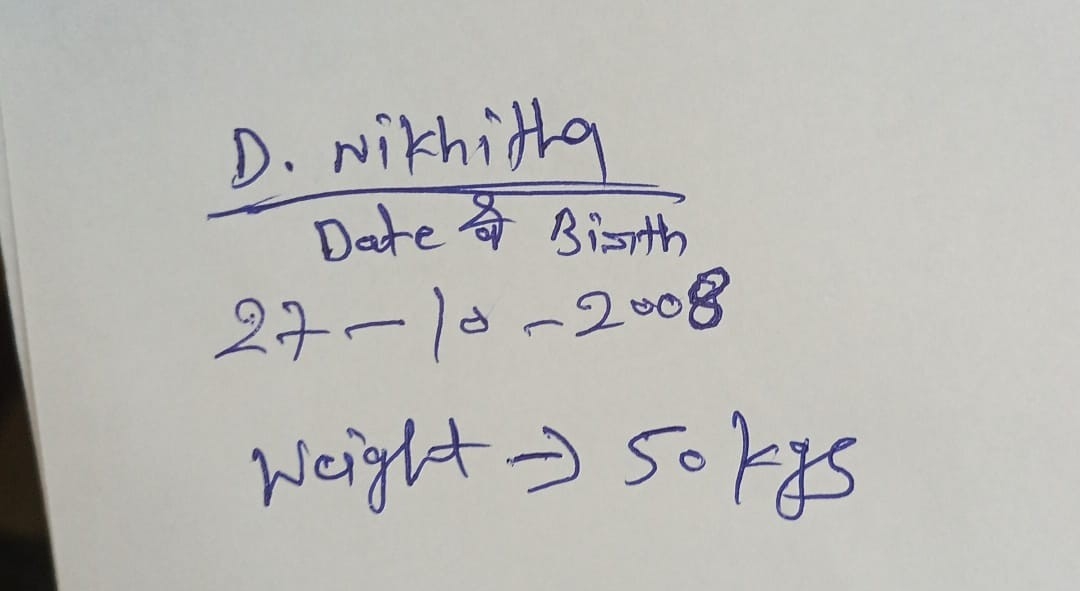 D. Nikhitha
Date of Birth
27-10-2008
Weight → 50 kgs